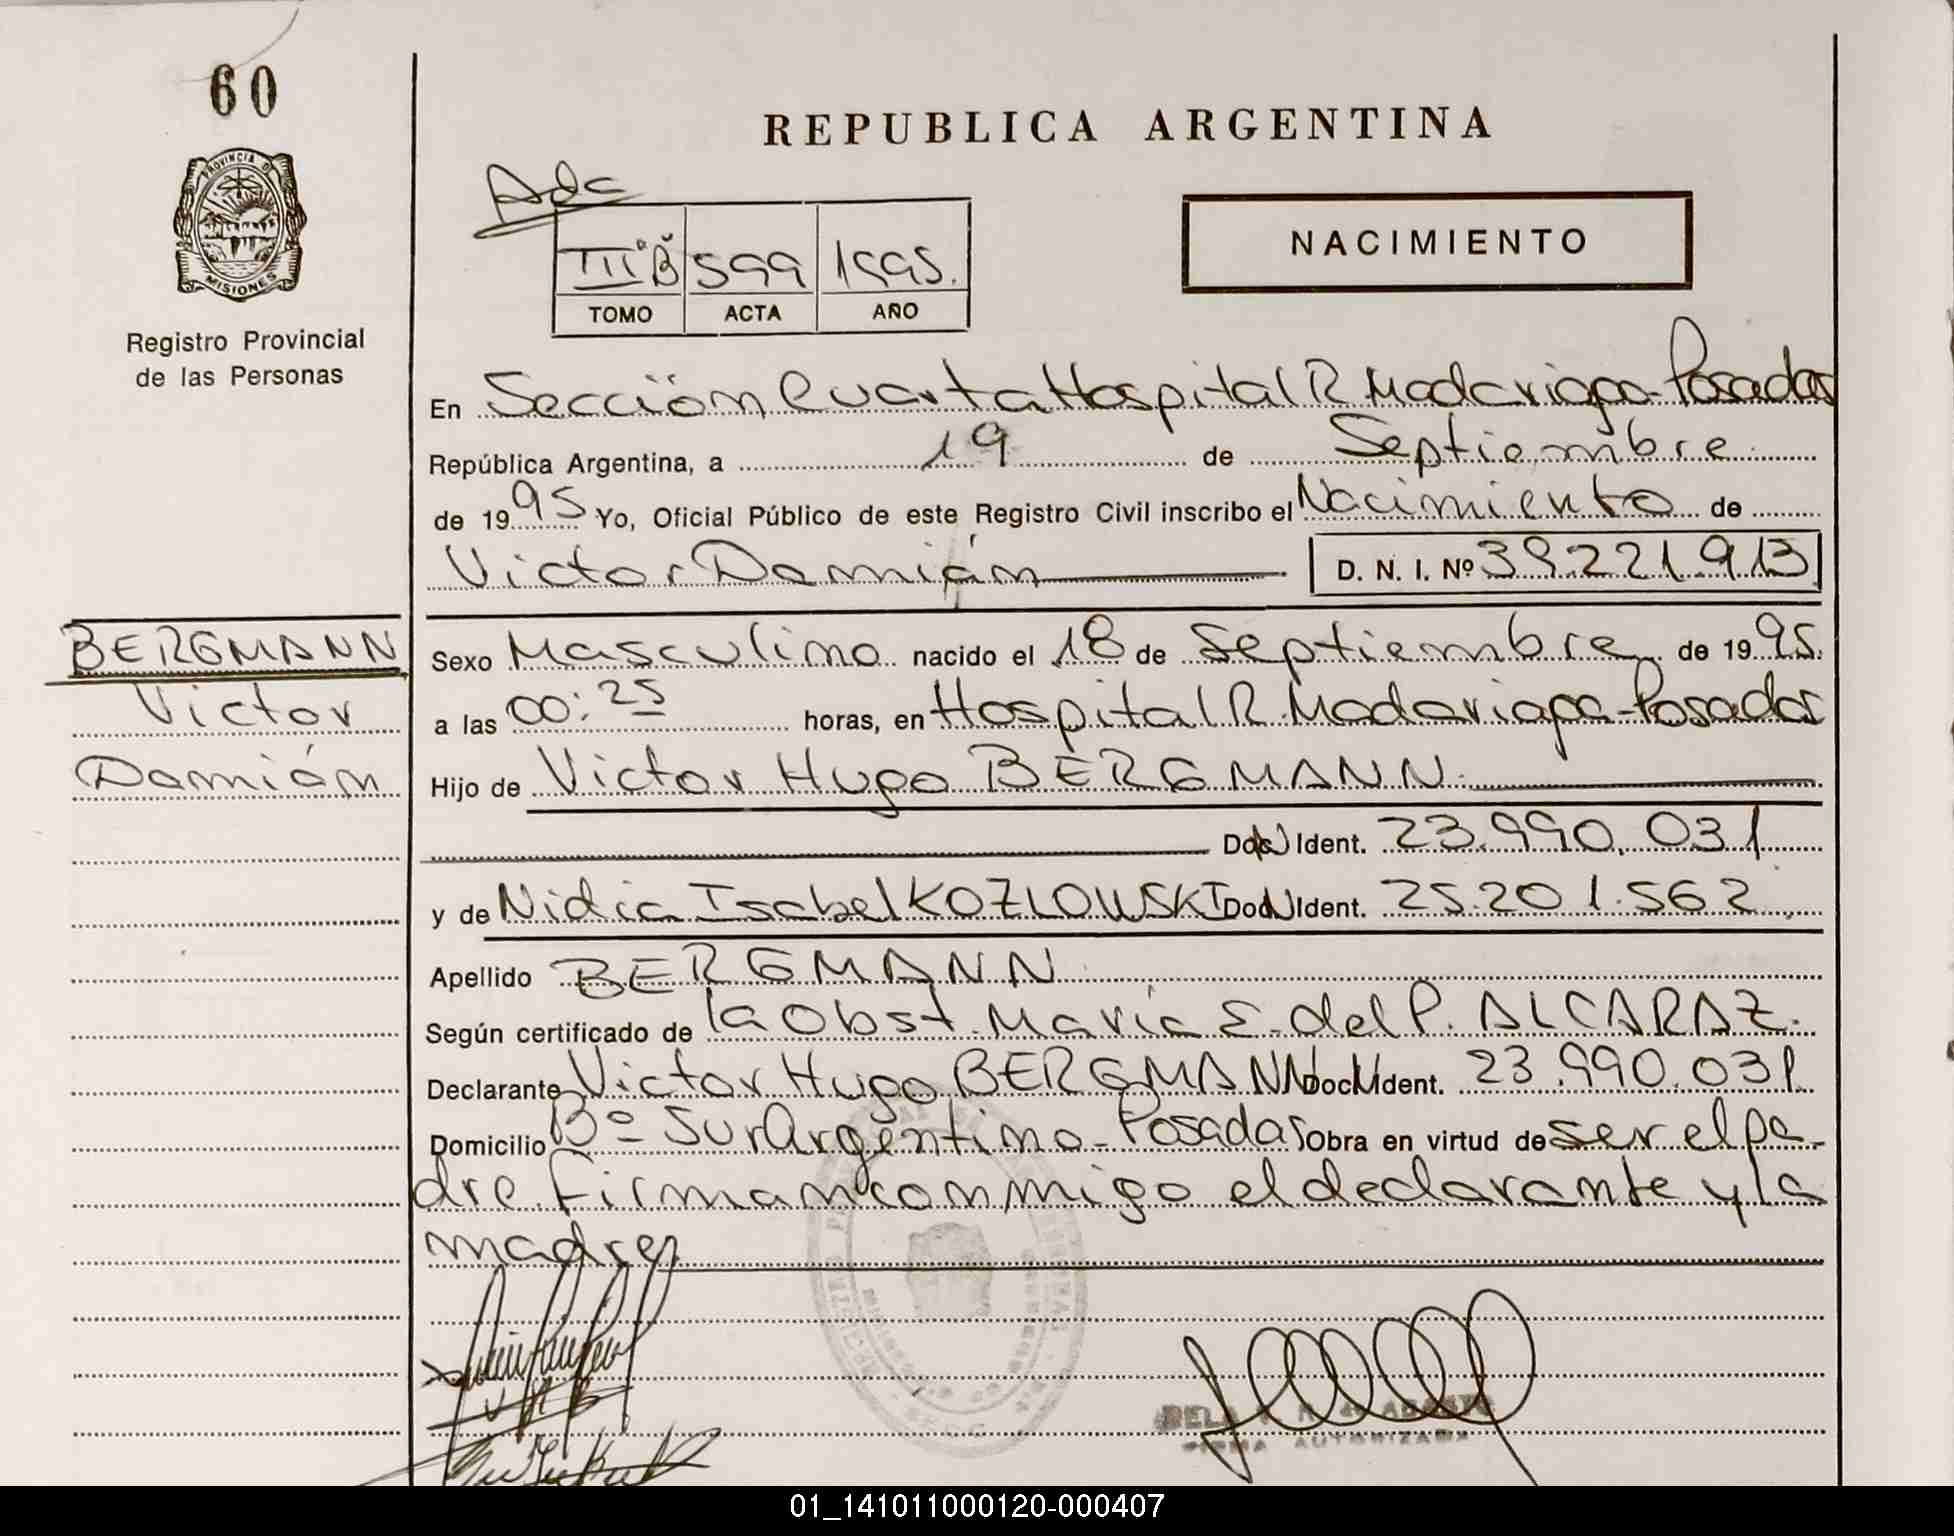 60
REPUBLICA ARGENTINA
PROVINCIA D
MISIONES
Registro Provincial
de las Personas
Adc
IIIº B 599 1995.
TOMO ACTA AÑO
NACIMIENTO
En Sección Cuarta Hospital R Madariaga-Posadas
República Argentina, a 19 de Septiembre
de 1995 Yo, Oficial Público de este Registro Civil inscribo el Nacimiento de
Victor Damián D. N. I. Nº 39221913
BERGMANN
Victor
Damián
Sexo Masculino nacido el 18 de Septiembre de 1995.
a las 00:25 horas, en Hospital R. Madariaga-Posadas
Hijo de Victor Hugo BERGMANN.
Ident. 23.990.031
y de Nidia Isabel KOZLOWSKI Ident. 25.201.562
Apellido BERGMANN
Según certificado de la Obst. María E. del P. ALCARAZ.
Declarante Victor Hugo BERGMANN Ident. 23.990.031
Domicilio Bº Sur Argentino-Posadas Obra en virtud de ser el pa-
dre. Firman conmigo el declarante y la
madre
FIRMA AUTORIZADA
01_141011000120-000407